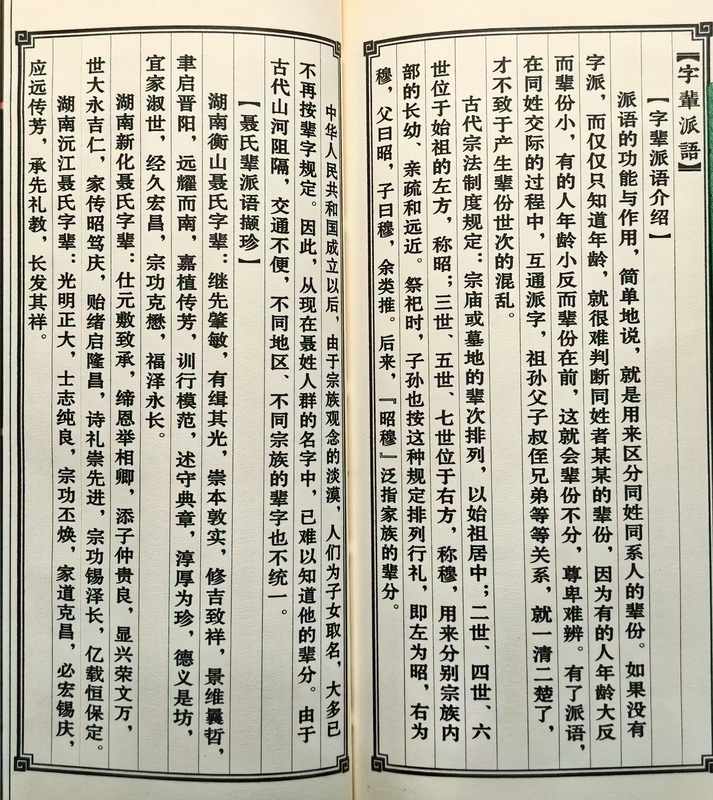 【字輩派語】
【字辈派语介绍】
派语的功能与作用，简单地说，就是用来区分同姓同系人的辈份。如果没有
字派，而仅仅只知道年龄，就很难判断同姓者某某的辈份，因为有的人年龄大反
而辈份小，有的人年龄小反而辈份在前，这就会辈份不分，尊卑难辨。有了派语，
在同姓交际的过程中，互通派字，祖孙父子叔侄兄弟等等关系，就一清二楚了，
才不致于产生辈份世次的混乱。
古代宗法制度规定：宗庙或墓地的辈次排列，以始祖居中；二世、四世、六
世位于始祖的左方，称昭；三世、五世、七世位于右方，称穆，用来分别宗族内
部的长幼、亲疏和远近。祭祀时，子孙也按这种规定排列行礼，即左为昭，右为
穆，父曰昭，子曰穆，余类推。后来，『昭穆』泛指家族的辈分。
中华人民共和国成立以后，由于宗族观念的淡漠，人们为子女取名，大多已
不再按辈字规定。因此，从现在聂姓人群的名字中，已难以知道他的辈分。由于
古代山河阻隔，交通不便，不同地区、不同宗族的辈字也不统一。
【聂氏辈派语撷珍】
湖南衡山聂氏字辈：继先肇敏，有缉其光，崇本敦实，修吉致祥，景维曩哲，
聿启晋阳，远耀而南，嘉植传芳，训行模范，述守典章，淳厚为珍，德义是坊，
宜家淑世，经久宏昌，宗功克懋，福泽永长。
湖南新化聂氏字辈：仕元敷致承，缔恩举相卿，添子仲贵良，显兴荣文万，
世大永吉仁，家传昭笃庆，贻绪启隆昌，诗礼崇先进，宗功锡泽长，亿载恒保定。
湖南沅江聂氏字辈：光明正大，士志纯良，宗功丕焕，家道克昌，必宏锡庆，
应远传芳，承先礼教，长发其祥。